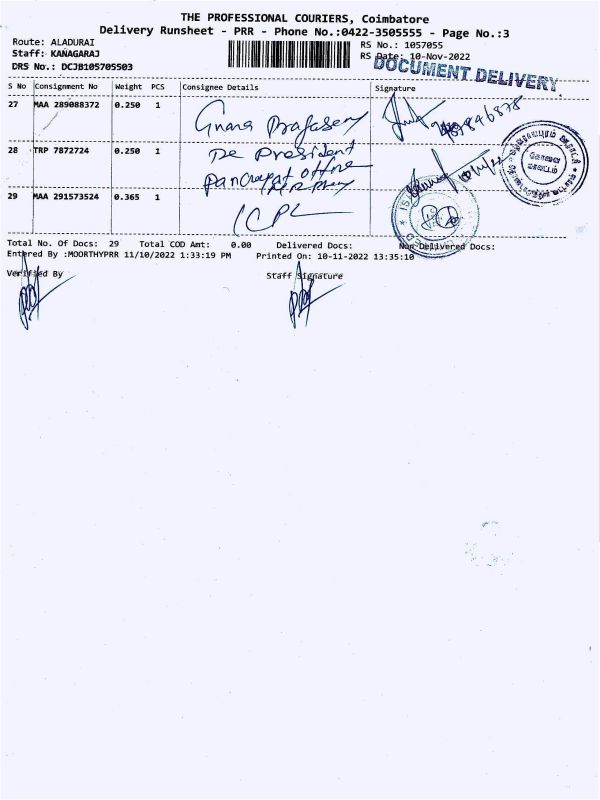 THE PROFESSIONAL COURIERS, Coimbatore
Delivery Runsheet - PRR - Phone No.:0422-3505555 - Page No.:3
Route: ALADURAI
RS No.: 1057055
Staff: KANAGARAJ
RS Date: 10-Nov-2022
DRS No.: DCJB105705503
DOCUMENT DELIVERY
S No Consignment No Weight PCS Consignee Details Signature
27 MAA 289088372 0.250 1
28 TRP 7872724 0.250 1
President
29 MAA 291573524 0.365 1
ICPL
கோவை
மாவட்டம்
Total No. Of Docs: 29 Total COD Amt: 0.00 Delivered Docs: Non Delivered Docs:
Entered By :MOORTHYPRR 11/10/2022 1:33:19 PM Printed On: 10-11-2022 13:35:10
Verified By Staff Signature